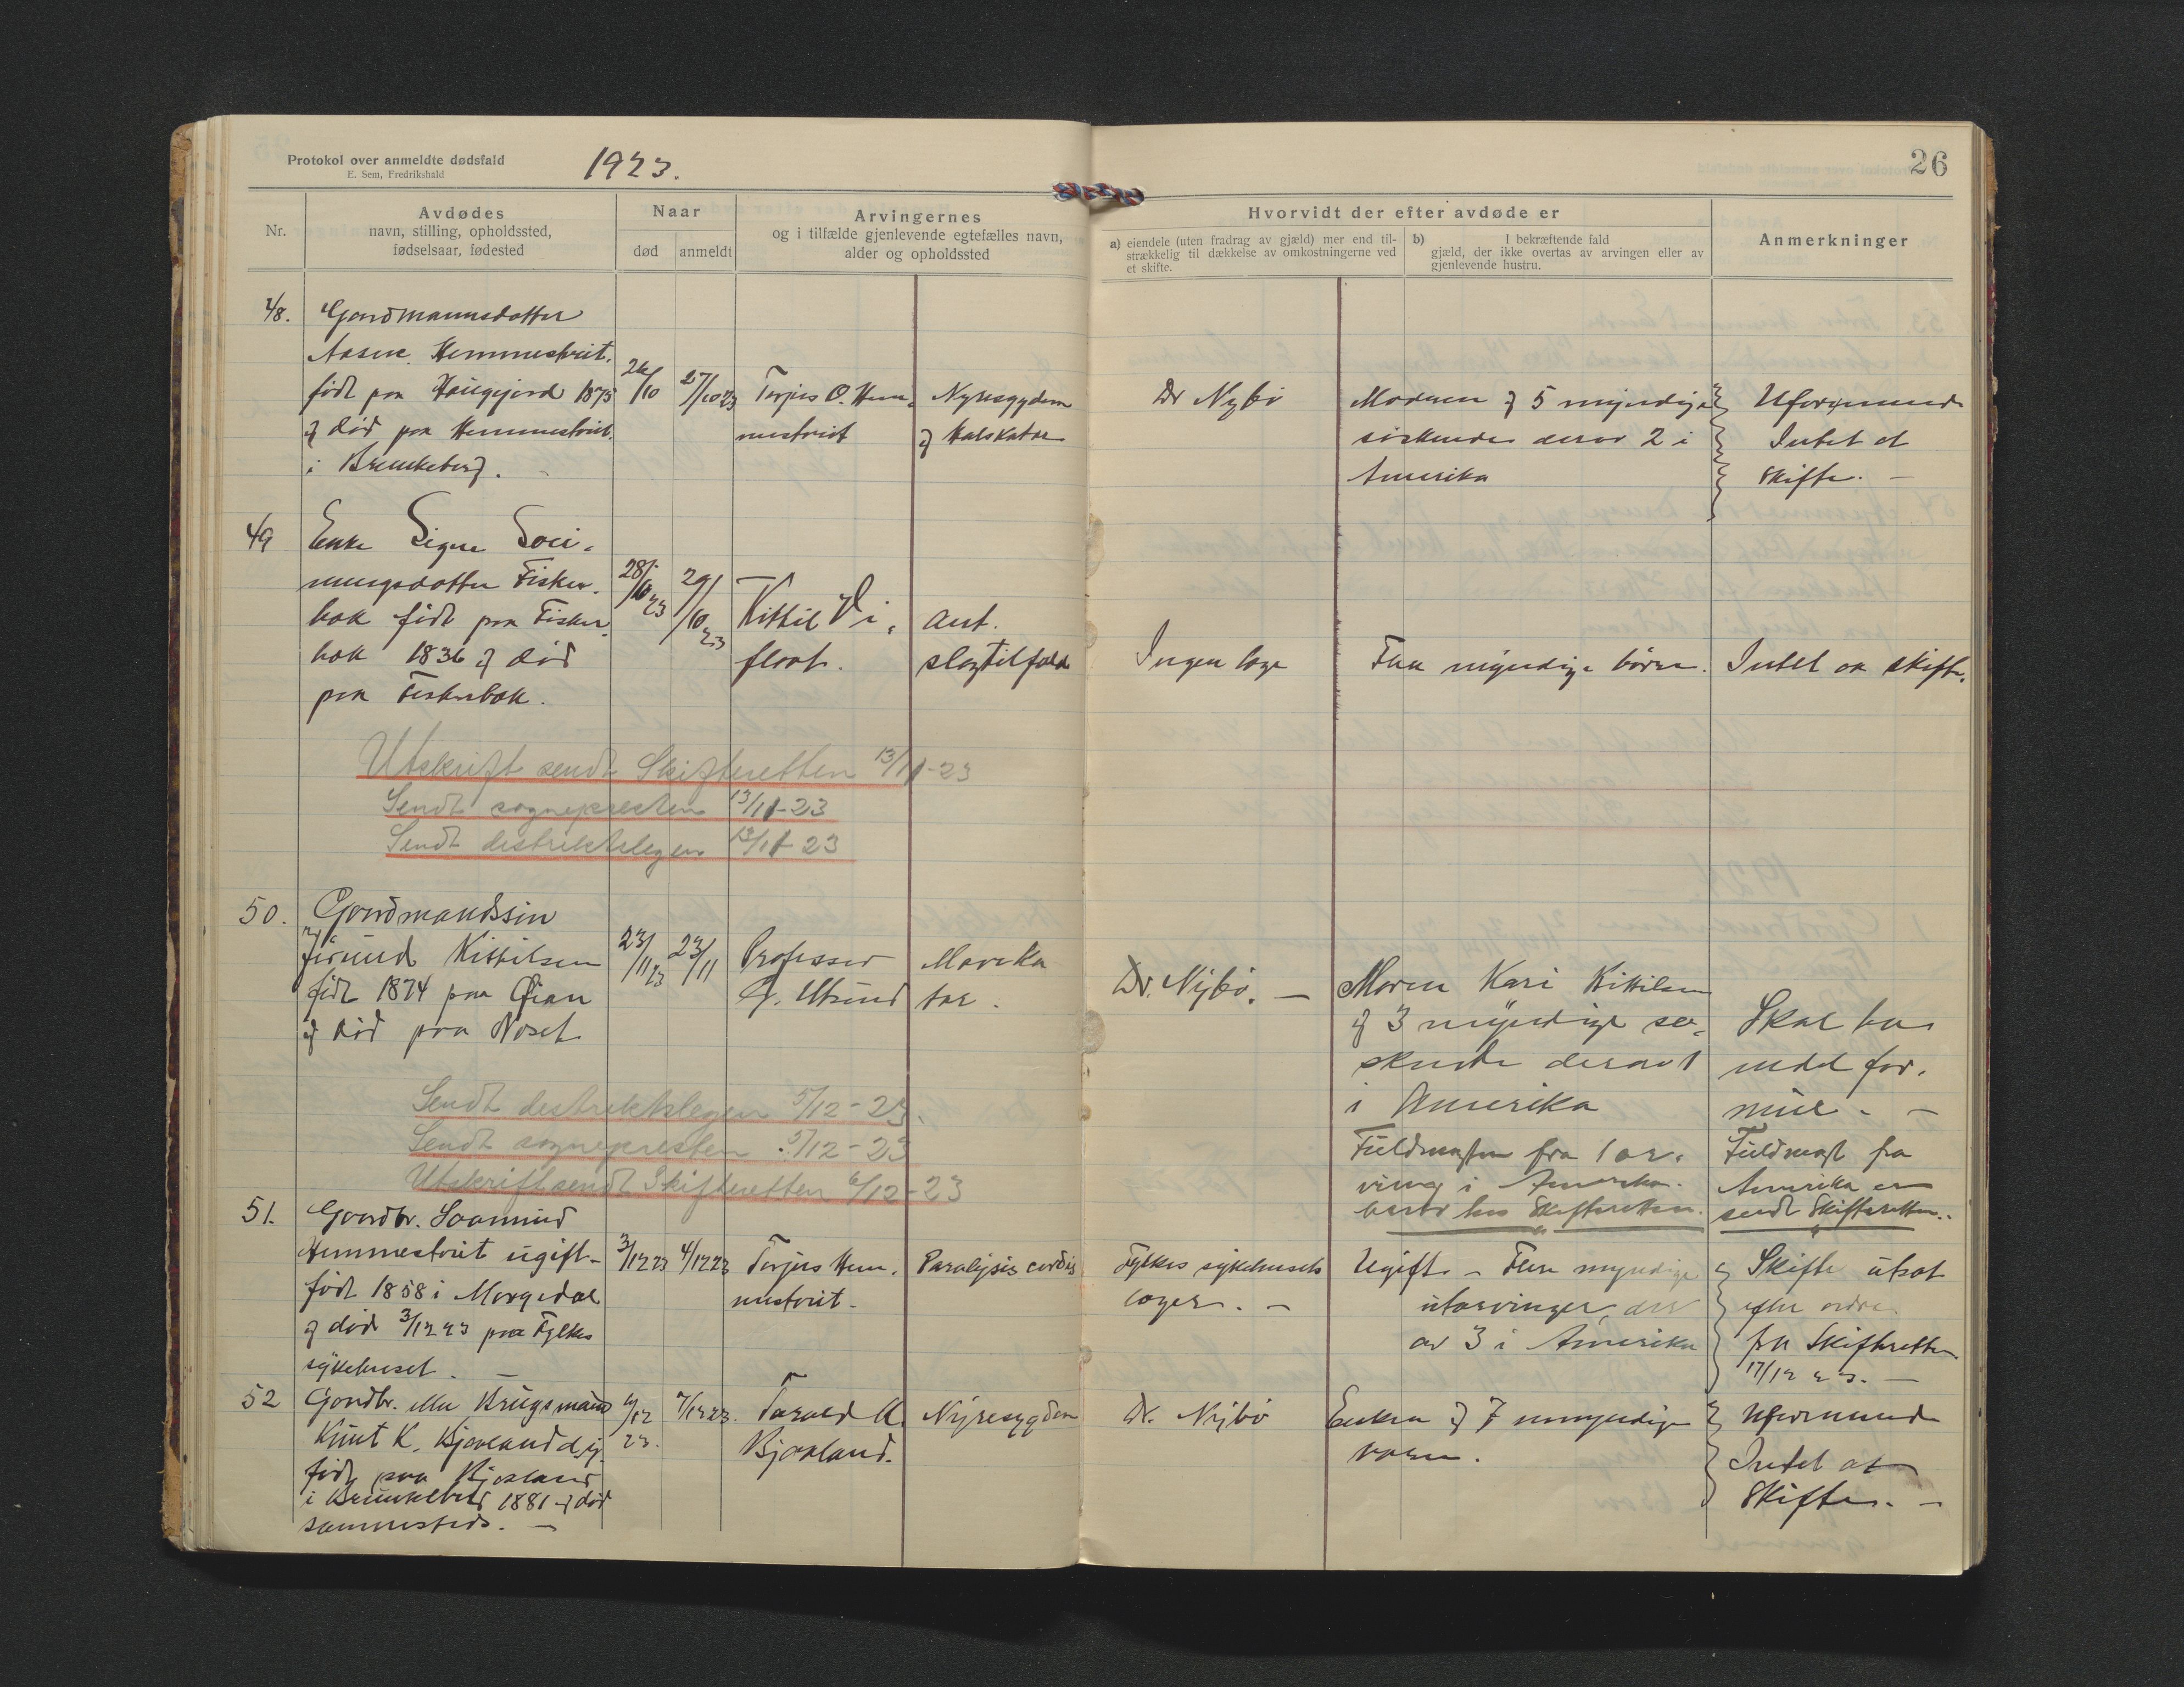 Protokol over anmeldte dødsfald
E. Sem, Fredrikshald
1923.
26
Nr.
Avdødes
navn, stilling, opholdssted,
fødselsaar, fødested
Naar
død
anmeldt
Arvingernes
og i tilfælde gjenlevende egtefælles navn,
alder og opholdssted
Hvorvidt der efter avdøde er
a) eiendele (uten fradrag av gjæld) mer end til-
strækkelig til dækkelse av omkostningerne ved
et skifte.
b) I bekræftende fald
gjæld, der ikke overtas av arvingen eller av
gjenlevende hustru.
Anmerkninger
48.
Gardmannsdotter
Aasne Hemmestveit.
født paa 1875
og død paa Hemmestveit
i Brunkeberg.
26/10
27/10 23
Torjus O. Hem-
mestveit
Nyresygdom
og Halskatar
Dr Nybø
Moderen og 5 myndige
søskende derav 2 i
Amerika
Uformuende
Intet at
skifte. -
49
Enke Signe Svei-
nungsdotter Fisker-
bak født paa Fisker-
bak 1836 og død
paa Fiskerbak.
28/10 23
29/10 23
Kittil Vi-
float.
Ant.
slagtilfæld
Ingen læge
Flere myndige børn.
Intet aa skifte.
Utskrift sendt Skifteretten 13/11-23
Sendt sognepresten 13/11-23
Sendt distriktslegen 13/11-23
50.
Gardmandssøn
Jørund Kittilsen
født 1874 paa Øian
og død paa Noset
23/11 23
23/11
Professor
Utsund
Mavekatar.
Dr. Nybø. -
Moren Kari Kittilsen
og 3 myndige sø-
skende derav 1
i Amerika
Fuldmagten fra 1 ar-
ving i Amerika
bero hos Skifteretten.
Skal ha
endel for-
mue. -
Fuldmagt fra
Amerika er
sendt Skifteretten.
Sendt distriktslegen 5/12-23.
Sendt sognepresten 5/12-23
Utskrift sendt Skifteretten 6/12-23
51.
Gardbr. Saamund
Hemmestveit ugift-
født 1858 i Morgedal
og død 3/12 23 paa Fylkes
sykehuset.
3/12 23
4/12 23
Torjus Hem-
mestveit.
Paralysis cordis
Fylkes sykehusets
læger. -
Ugift. - Flere myndige
utarvinger, der
av 3 i Amerika
Skifte utsat
efter ordre
fra Skifteretten
17/12 23. -
52
Gardbr. eller Brugsmand
Knut K. Bjaaland d.y.
født paa Bjaaland
i Brunkeberg 1881 og død
sammesteds. -
6/12 23.
7/12 23.
Tarald K.
Bjaaland.
Nyresygdom
Dr. Nybø
Enken og 7 umyndige
barn.
Uformuende
Intet at
Skifte. -